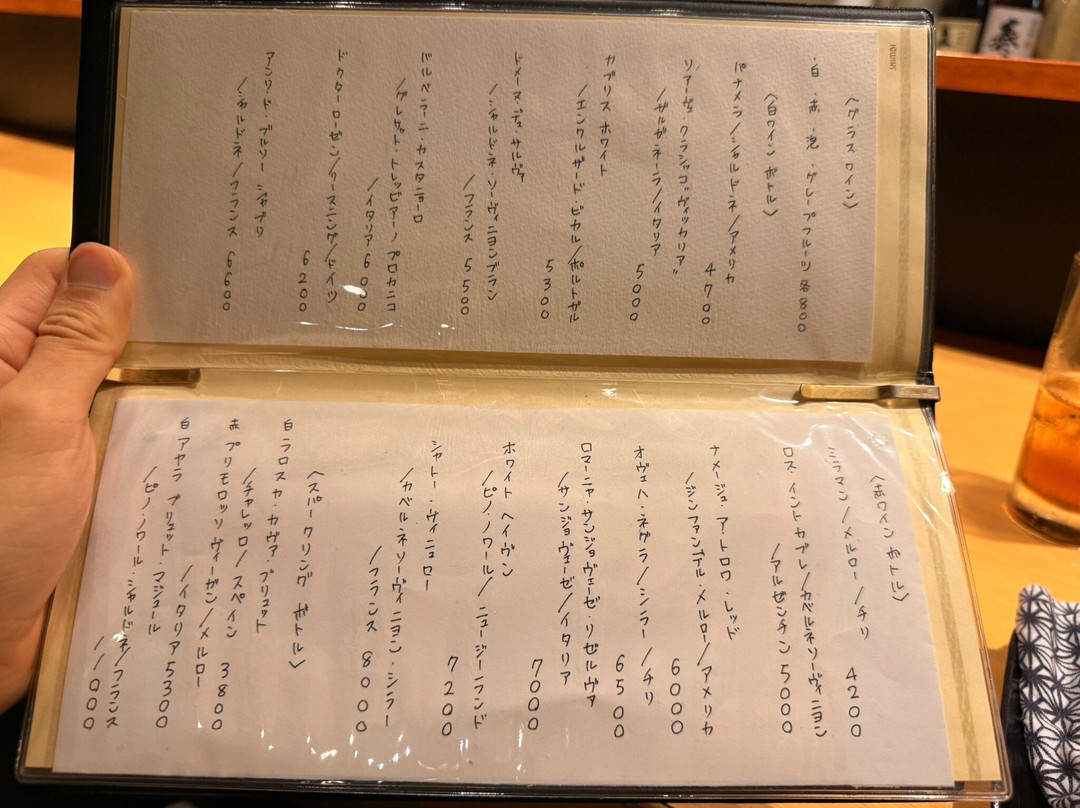 〈グラスワイン〉
・白・赤・泡・グレープフルーツ 各800
〈白ワイン ボトル〉
パナメラ/シャルドネ/アメリカ
4700
ソアーヴェ・クラシッコ"ヴィッカリア"
/ガルガネーラ/イタリア
5000
カブリス ホワイト
/エンクルザード・ビカル/ポルトガル
5300
ドメーヌ・デュ・サルヴァ
/シャルドネ・ソーヴィニヨンブラン
/フランス 5500
バルベラーニ・カスタニョーロ
/グレケット・トレッビアーノ プロカニコ
/イタリア 6000
ドクターローゼン/リースニング/ドイツ
6200
アンリ・ド・ブルソー シャブリ
/シャルドネ/フランス 6600
〈赤ワイン ボトル〉
ミラマン/メルロー/チリ 4200
ロス・イントカブレ/カベルネソーヴィニヨン
/アルゼンチン 5000
ナメージュ・ア・トロワ・レッド
/ジンファンデル・メルロー/アメリカ
6000
オヴェハ・ネグラ/シラー/チリ
6500
ロマーニャ・サンジョヴェーゼ・リゼルヴァ
/サンジョヴェーゼ/イタリア
7000
ホワイトヘイヴン
/ピノ・ノワール/ニュージーランド
7200
シャトー・ヴィニュロー
/カベルネソーヴィニヨン・シラー
/フランス 8000
〈スパークリング ボトル〉
白 ラロスカ・カヴァ・ブリュット
/チャレッロ/スペイン 3800
赤 プリモロッソ ヴィーガン/メルロー
/イタリア 5300
白 アヤラ ブリュット・マジュール
/ピノ・ノワール・シャルドネ/フランス
11000